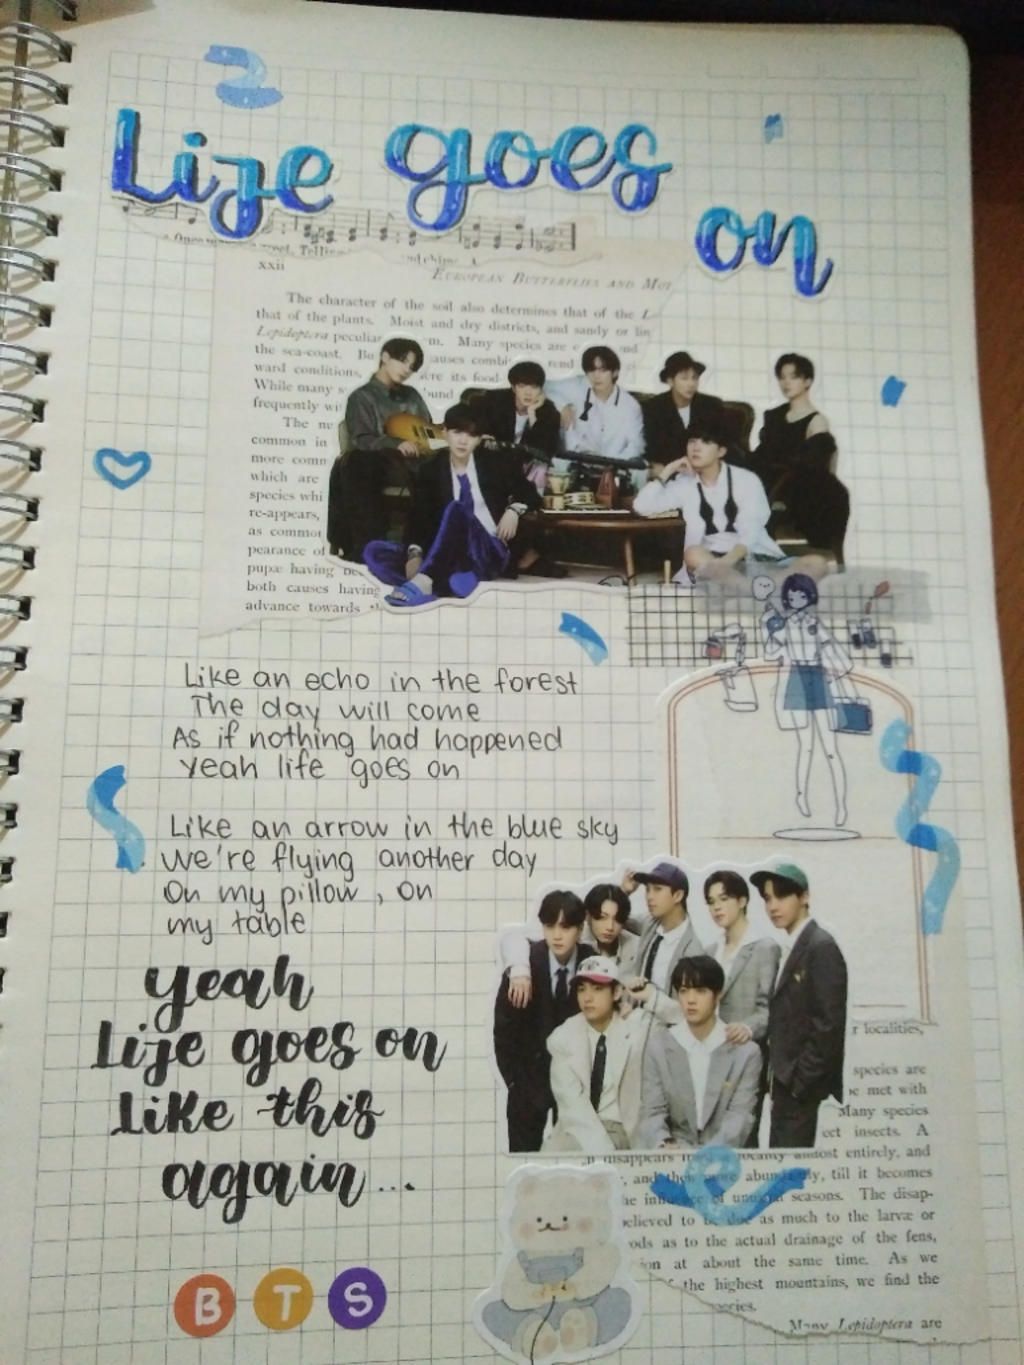 Life goes
on
Once
reet, Telling
and chime. A
xxii
EUROPEAN BUTTERFLIES AND
The character of the soil also determines that of the
that of the plants. Moist and dry districts, and sandy or
Lepidoptera peculiar Many species are
the sea-coast.
ward conditions, its food-
While many
frequently
The
common in
more
which are
species
re-appears,
as
pearance of
pupæ having
both causes having
advance towards
Like an echo in the forest
The day will come
As if nothing had happened
Yeah life goes on
Like an arrow in the blue sky
We're flying another day
On my pillow, on
my table
yeah
Life goes on
Like this
again...
localities,
species are
met with
Many species
insects. A
disappears almost entirely, and
, and then more abundantly, till it becomes
of seasons. The disap-
believed to be due as much to the larvæ or
as to the actual drainage of the fens,
at about the same time. As we
the highest mountains, we find the
species.
Many Lepidoptera are
B T S